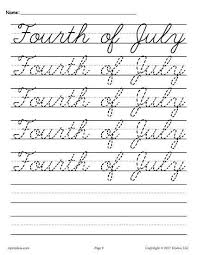 Name:
Fourth of July
Fourth of July
Fourth of July
Fourth of July
Fourth of July
Page 8